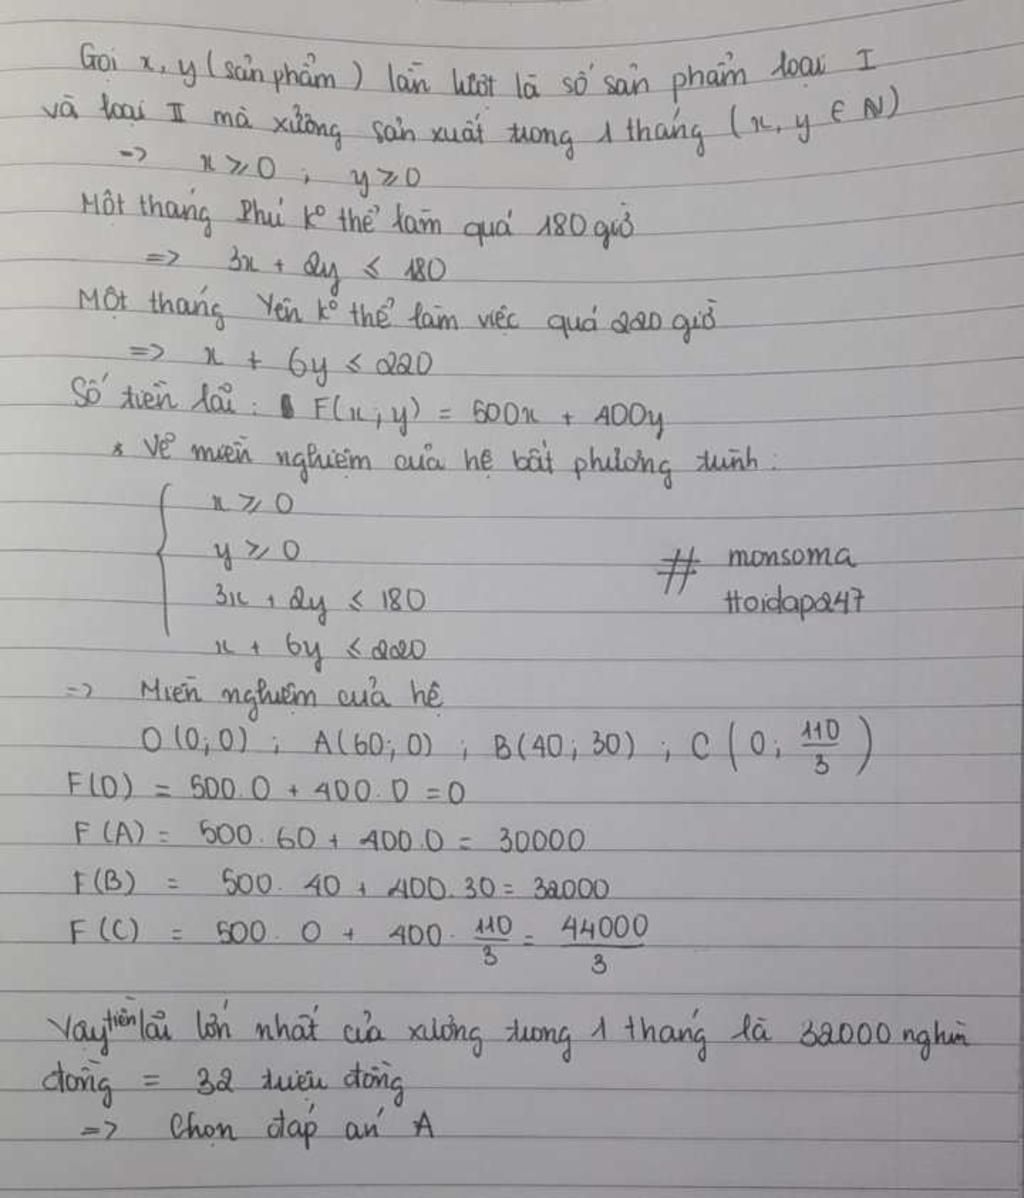 Gọi x, y (sản phẩm) lần lượt là số sản phẩm loại I
và loại II mà xưởng sản xuất trong 1 tháng (x, y ∈ N)
=> x ≥ 0 ; y ≥ 0
Một tháng Phú k° thể làm quá 180 giờ
=> 3x + 2y ≤ 180
Một tháng Yên k° thể làm việc quá 220 giờ
=> x + 6y ≤ 220
Số tiền lãi : F(x, y) = 500x + 400y
* Vẽ miền nghiệm của hệ bất phương trình :
x ≥ 0
y ≥ 0
# monsoma
3x + 2y ≤ 180
Hoidap247
x + 6y ≤ 220
=> Miền nghiệm của hệ
O(0;0) ; A(60;0) ; B(40;30) ; C(0; 110/3)
F(O) = 500.0 + 400.0 = 0
F(A) = 500.60 + 400.0 = 30000
F(B) = 500.40 + 400.30 = 32000
F(C) = 500.0 + 400.110/3 = 44000/3
Vậy tiền lãi lớn nhất của xưởng trong 1 tháng là 32000 nghìn
đồng = 32 triệu đồng
=> Chọn đáp án A